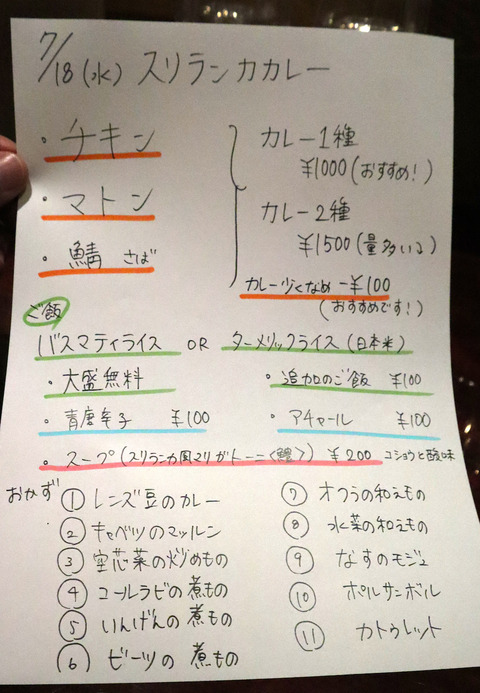 7/18(水) スリランカカレー
・チキン
・マトン
・鯖 さば
カレー1種
¥1000(おすすめ!)
カレー2種
¥1500(量多いよ)
カレー少くなめ -¥100
(おすすめです!)
ご飯
バスマティライス OR ターメリックライス(日本米)
・大盛無料 ・追加のご飯 ¥100
・青唐辛子 ¥100 ・アチャール ¥100
・スープ(スリランカ風マリガトーニ<鯉>) ¥200 コショウと酸味
おかず
① レンズ豆のカレー
② キャベツのマッルン
③ 空芯菜の炒めもの
④ コールラビの煮もの
⑤ いんげんの煮もの
⑥ ビーツの煮もの
⑦ オクラの和えもの
⑧ 水菜の和えもの
⑨ なすのモジュ
⑩ ポルサンボル
⑪ カトゥレット